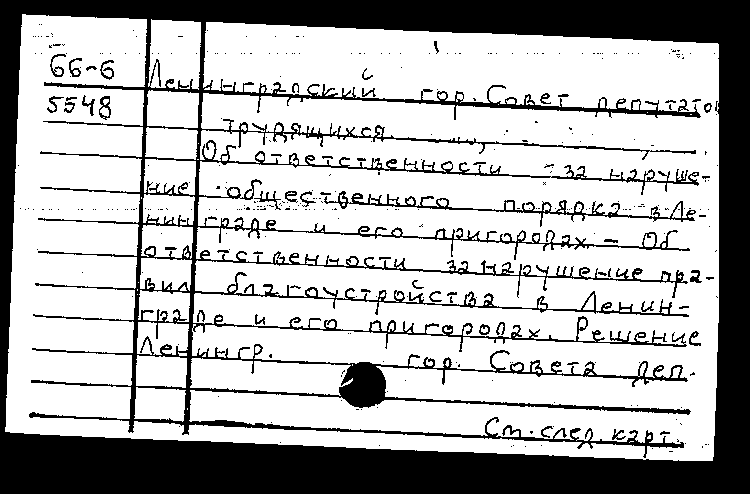 66-6
5548
Ленинградский гор. Совет депутатов
трудящихся.
Об ответственности за наруше-
ние общественного порядка в Ле-
нинграде и его пригородах – Об
ответственности за нарушение пра-
вил благоустройства в Ленин-
граде и его пригородах. Решение
Ленингр. гор. Совета деп.
См. след. карт.